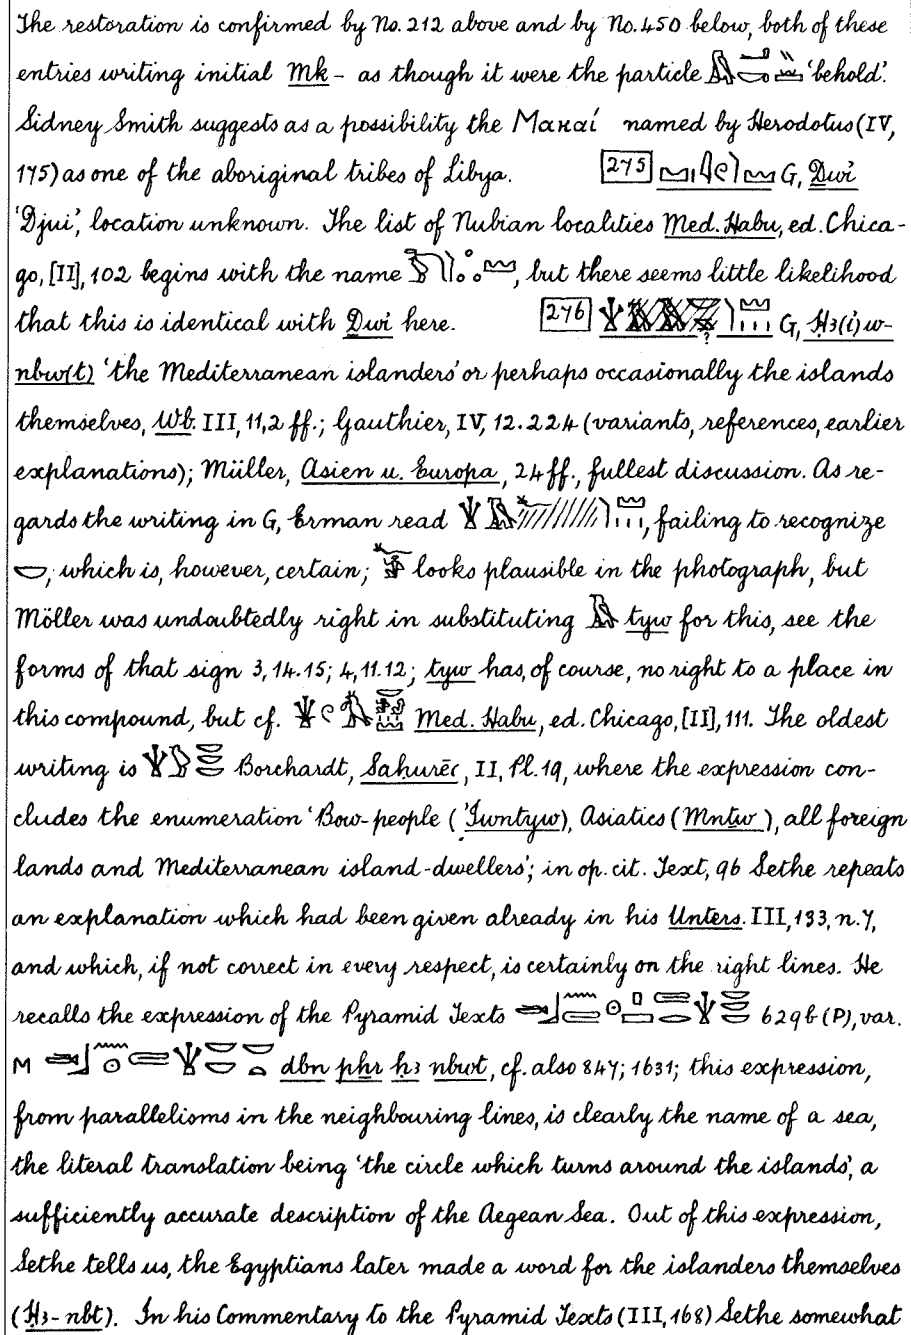 The restoration is confirmed by No. 212 above and by No. 450 below, both of these
entries writing initial Mk- as though it were the particle 'behold'.
Sidney Smith suggests as a possibility the Μακαί named by Herodotus (IV,
175) as one of the aboriginal tribes of Libya. 275 G, Ḏwỉ
'Djui', location unknown. The list of Nubian localities Med. Habu, ed. Chica-
go, [II], 102 begins with the name , but there seems little likelihood
that this is identical with Ḏwỉ here. 276 G, Ḥꜣ(ỉ)w-
nbw(t) 'the Mediterranean islanders' or perhaps occasionally the islands
themselves, Wb. III, 11,2 ff.; Gauthier, IV, 12.224 (variants, references, earlier
explanations); Müller, Asien u. Europa, 24 ff., fullest discussion. As re-
gards the writing in G, Erman read , failing to recognize
, which is, however, certain; looks plausible in the photograph, but
Möller was undoubtedly right in substituting tyw for this, see the
forms of that sign 3, 14.15; 4, 11.12; tyw has, of course, no right to a place in
this compound, but cf. Med. Habu, ed. Chicago, [II], 111. The oldest
writing is Borchardt, Sahurēꜥ, II, Pl. 19, where the expression con-
cludes the enumeration 'Bow-people (ỉwntyw), Asiatics (Mntw), all foreign
lands and Mediterranean island-dwellers'; in op. cit. Text, 96 Sethe repeats
an explanation which had been given already in his Unters. III, 133, n. 7,
and which, if not correct in every respect, is certainly on the right lines. He
recalls the expression of the Pyramid Texts 629b (P), var.
M dbn pḫr ḥꜣ nbwt, cf. also 847; 1631; this expression,
from parallelisms in the neighbouring lines, is clearly the name of a sea,
the literal translation being 'the circle which turns around the islands', a
sufficiently accurate description of the Aegean Sea. Out of this expression,
Sethe tells us, the Egyptians later made a word for the islanders themselves
(Ḥꜣ-nbt). In his Commentary to the Pyramid Texts (III, 168) Sethe somewhat